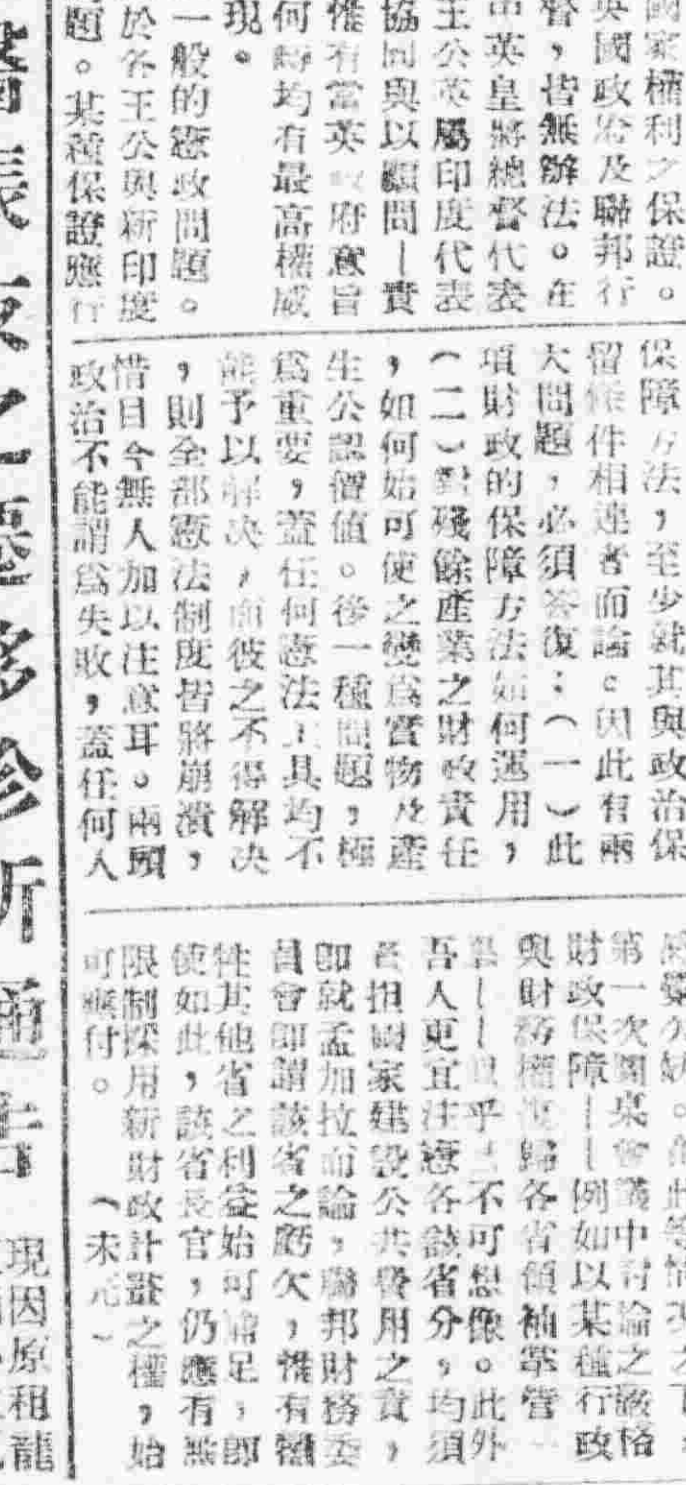 國家權利之保證。
英國政府及聯邦行
督，皆無辦法。在
英皇將總督代表
王公英屬印度代表
協同與以顧問—實
惟有當英政府意旨
何時均有最高權威
現。
一般的憲政問題。
於各王公與新印度
題。某種保證應行
保障方法，至少就其與政治保
留條件相連者而論。因此有兩
大問題，必須答復：（一）此
項財政的保障方法如何運用，
（二）對殘餘產業之財政責任
，如何始可使之變爲實物及產
生公認價值。後一種問題，極
爲重要，蓋任何憲法工具均不
能予以解決，而彼之不得解決
，則全部憲法制度皆將崩潰，
惜目今無人加以注意耳。兩頭
政治不能謂爲失敗，蓋任何人
第一次圓桌會議中討論之嚴格
財政保障——例如以某種行政
與財務權復歸各省領袖掌管
——似乎已不可想像。此外
吾人更宜注意各該省分，均須
負担國家建設公共費用之責，
即就孟加拉而論，聯邦財務委
員會即謂該省之虧欠，惟有犧
牲其他省之利益始可補足，即
使如此，該省長官，仍應有無
限制採用新財政計畫之權，始
可應付。　（未完）
診所通告
現因原租龍